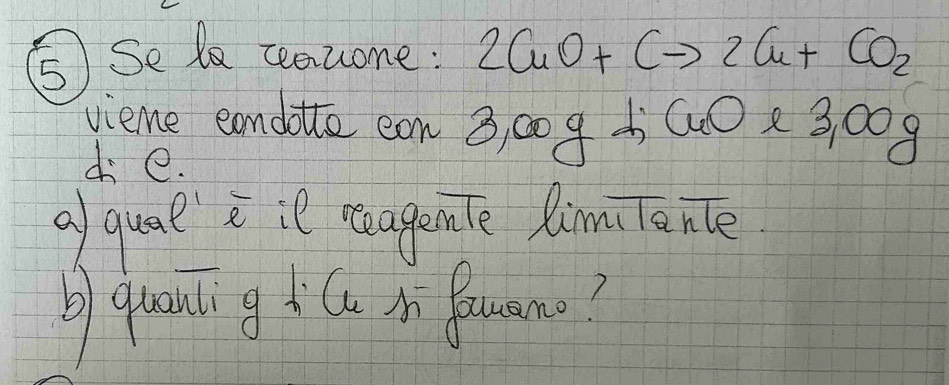 5 Se la reazione: 2CuO + C → 2Cu + CO₂
viene condotta con 3,00 g di CuO e 3,00 g
di C.
a) qual'è il reagente limitante.
b) quanti g di Cu si formano?